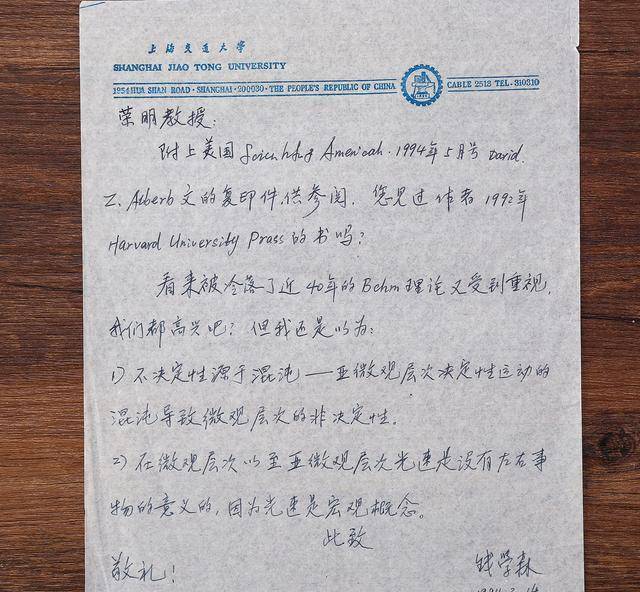 上海交通大学
SHANGHAI JIAO TONG UNIVERSITY
1954 HUA SHAN ROAD · SHANGHAI · 200030 · THE PEOPLE'S REPUBLIC OF CHINA CABLE 2513 TEL. 310310
荣明教授:
附上美国 Scientific American. 1994年5月号 David.
Z. Alberb 文的复印件,供参阅. 您见过作者1992年
Harvard University Prass 的书吗?
看来被冷落了近40年的 Bohm 理论又受到重视,
我们都高兴吧? 但我还是以为:
1) 不决定性源于混沌——亚微观层次决定性运动的
混沌导致微观层次的非决定性。
2) 在微观层次以至亚微观层次光速是没有左右事
物的意义的,因为光速是宏观概念。
此致
敬礼!
钱学森